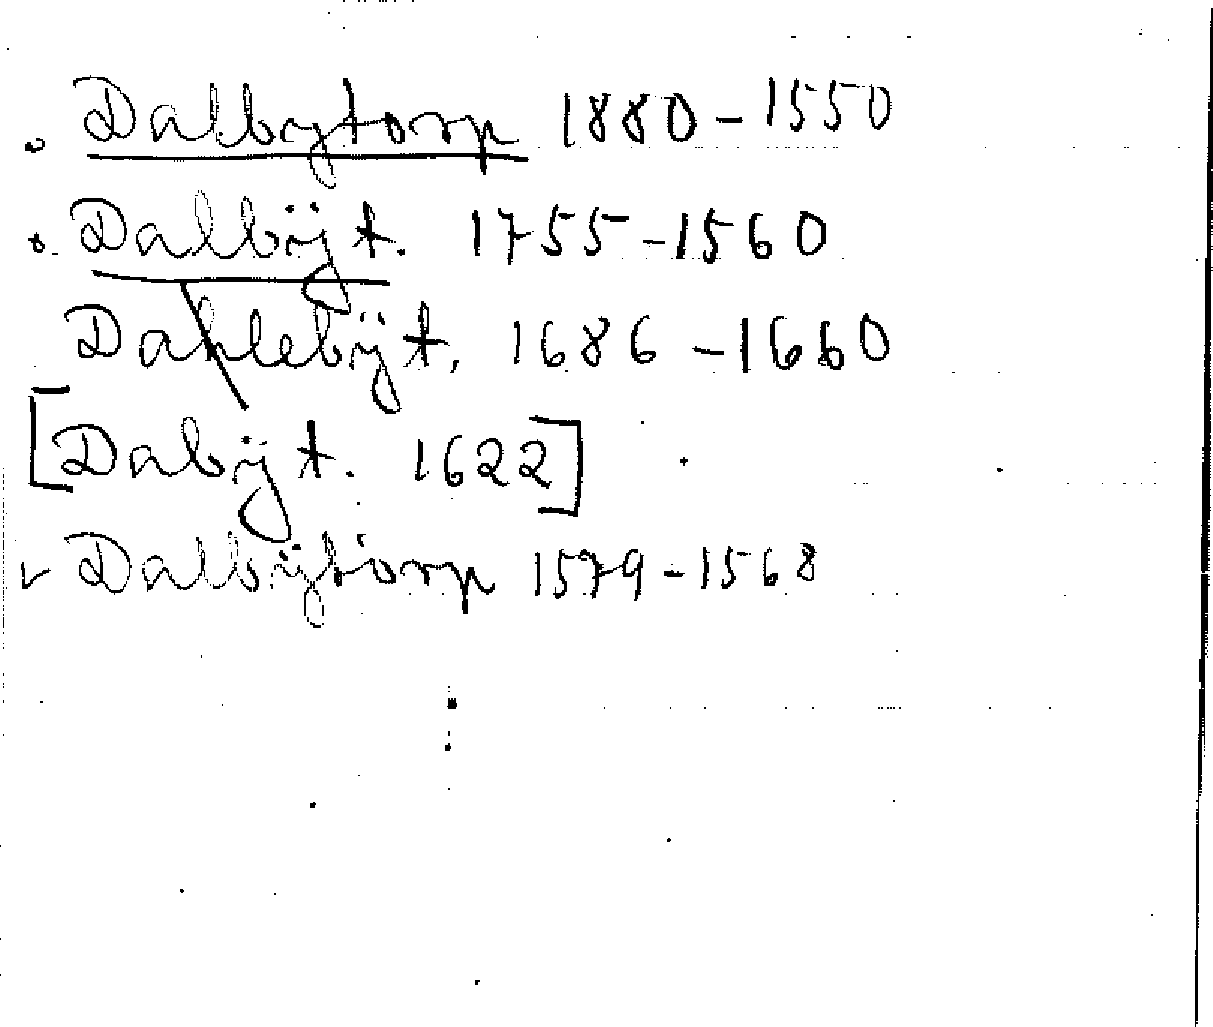 Dalbytorp 1880-1550
Dalbÿt. 1755-1560
Dahlebÿt. 1686-1660
[Dabÿt. 1622]
v Dalbÿtorp 1579-1568